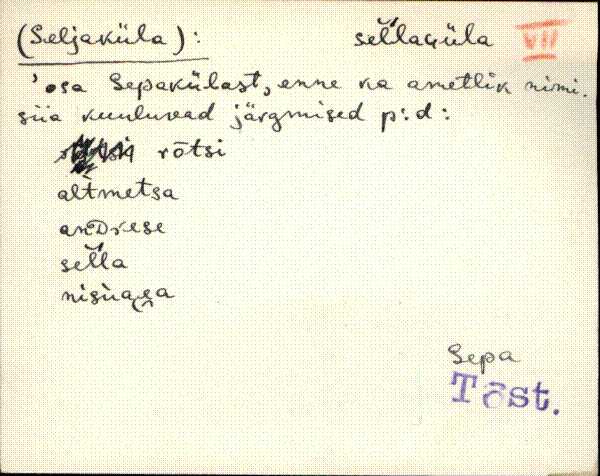 (Seljaküla): sel̆laGüla VII
'osa Sepakülast, enne ka ametlik nimi.
siia kuuluvad järgmised p:d:
rõtsi
altmetsa
anDrese
sel̆la
Sepa
Tõst.